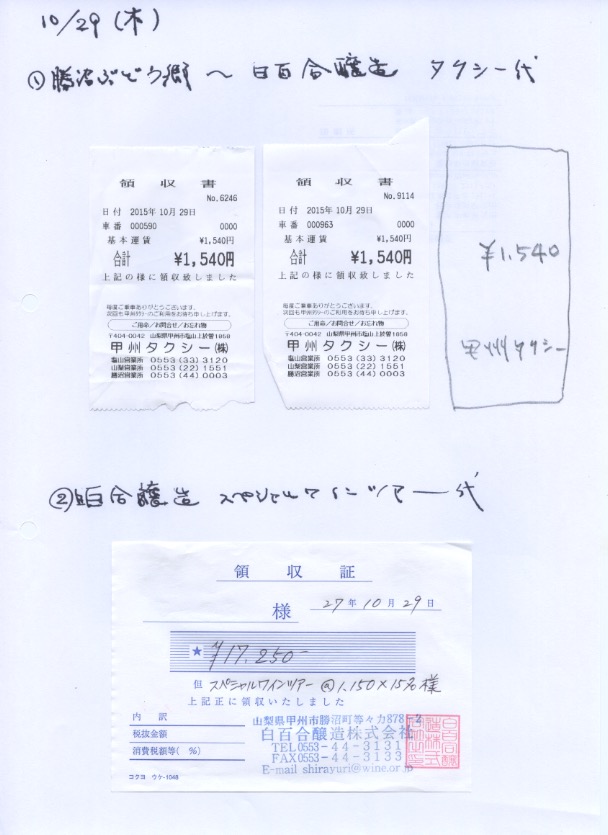 10/29(木)
①勝沼ぶどう郷 〜 白百合醸造 タクシー代
領収書
No.6246
日付 2015年10月29日
車番 000590 0000
基本運賃 ¥1,540円
合計 ¥1,540円
上記の様に領収致しました
毎度ご乗車ありがとうございます。
次回も甲州タクシーのご利用をお待ち申し上げます。
ご用命/お問合せ/お忘れ物
〒404-0042 山梨県甲州市塩山上於曽1858
甲州タクシー(株)
塩山営業所 0553(33)3120
山梨営業所 0553(22)1551
勝沼営業所 0553(44)0003
領収書
No.9114
日付 2015年10月29日
車番 000963 0000
基本運賃 ¥1,540円
合計 ¥1,540円
上記の様に領収致しました
毎度ご乗車ありがとうございます。
次回も甲州タクシーのご利用をお待ち申し上げます。
ご用命/お問合せ/お忘れ物
〒404-0042 山梨県甲州市塩山上於曽1858
甲州タクシー(株)
塩山営業所 0553(33)3120
山梨営業所 0553(22)1551
勝沼営業所 0553(44)0003
¥1,540
甲州タクシー
②白百合醸造 スペシャルワインツアー代
領収証
様 27年10月29日
★ ¥17,250-
但 スペシャルワインツアー @1,150×15名様
上記正に領収いたしました
内訳
税抜金額
消費税額等(%)
コクヨ ウケ-1048
山梨県甲州市勝沼町等々力878-2
白百合醸造株式会社
TEL0553-44-3131
FAX0553-44-3133
E-mail shirayuri@wine.or.jp